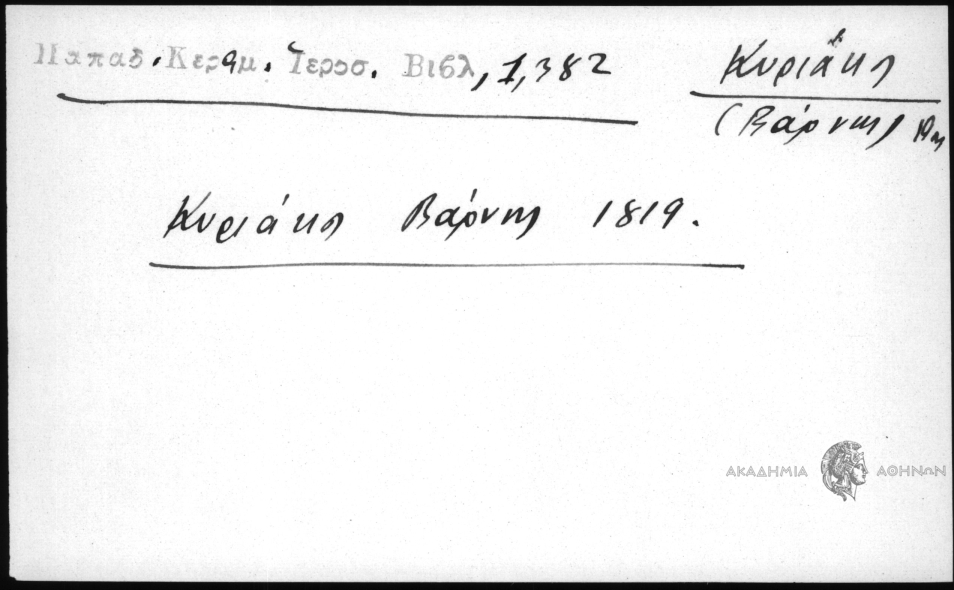 Παπαδ. Κεραμ. Ἱεροσ. Βιβλ, 1,382
Κυριάκη
(Βάρνης)
Κυριάκη Βάρνης 1819.
ΑΚΑΔΗΜΙΑ ΑΘΗΝΩΝ